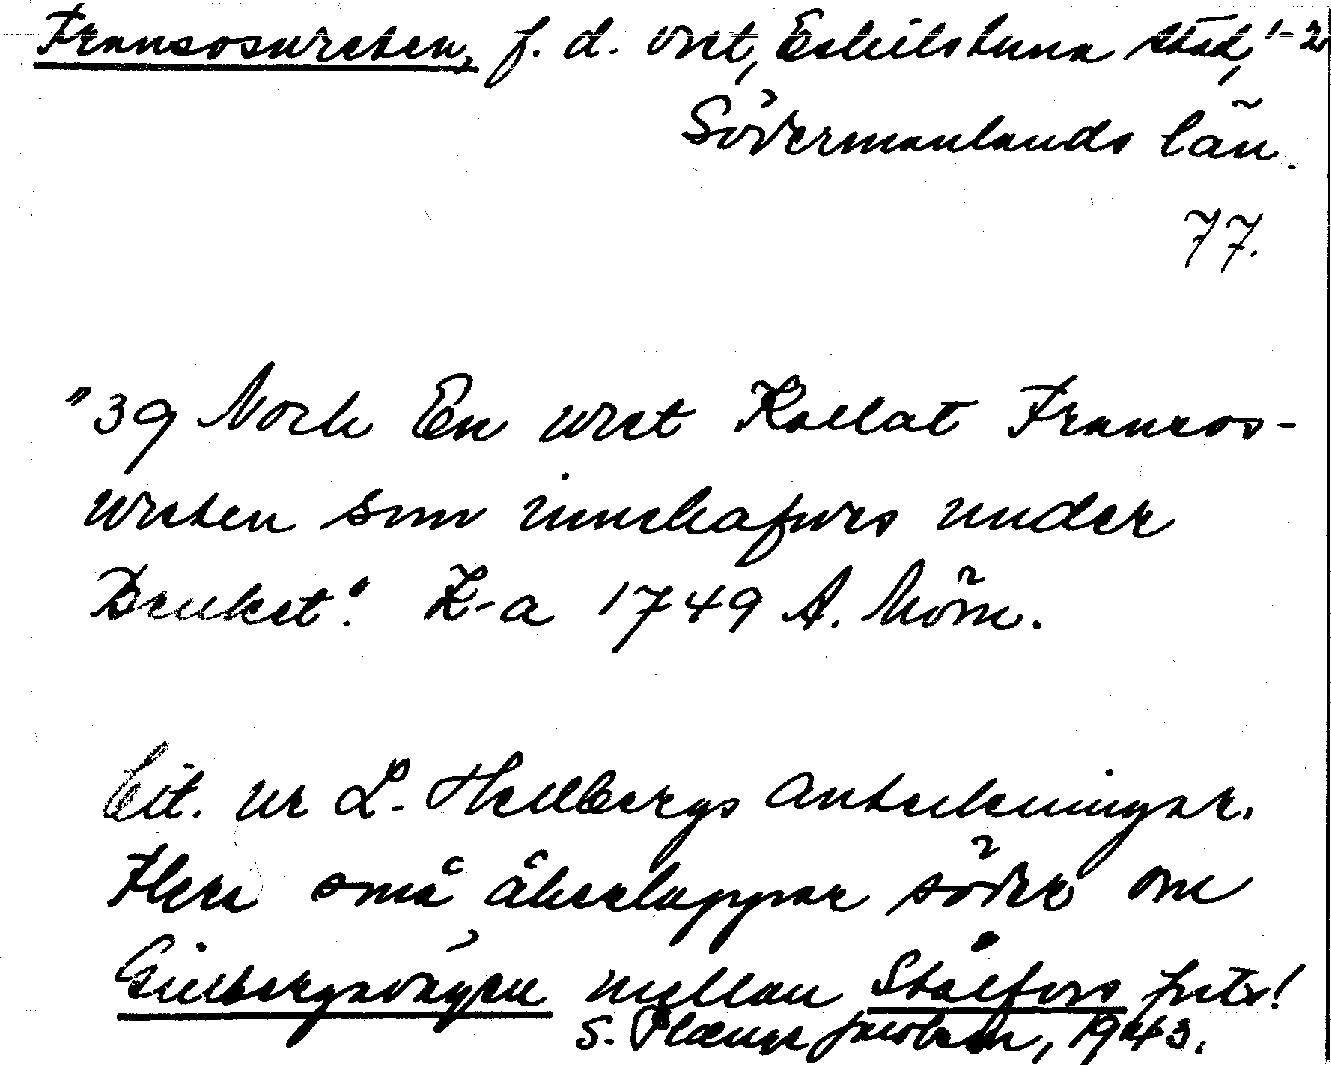 Fransosvreten, f. d. vret, Eskilstuna stad, 1-2
Södermanlands län.
77.
"39 Noch En vret Kallat Francos-
vreten som innehafves under
Bruket". K-a 1749 A. Mörn.
Cit. ur L. Hellbergs anteckningar.
Flera små åkerlappar söder om
Gillbergavägen mellan Stålfors
S. Jacobson, 1943.